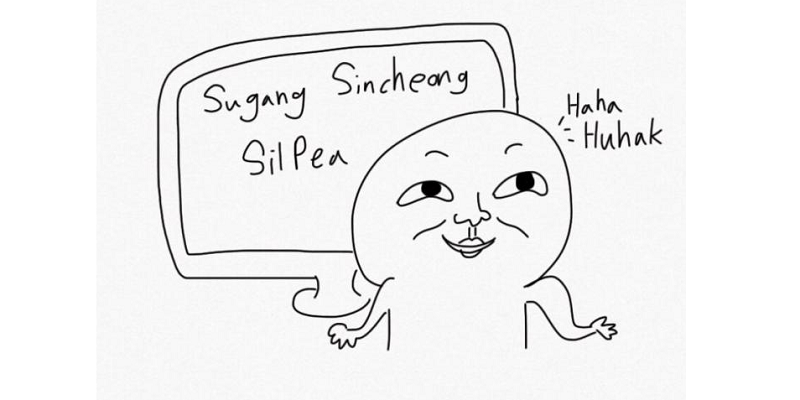 Sugang Sincheong
SilPea
Haha
Huhak